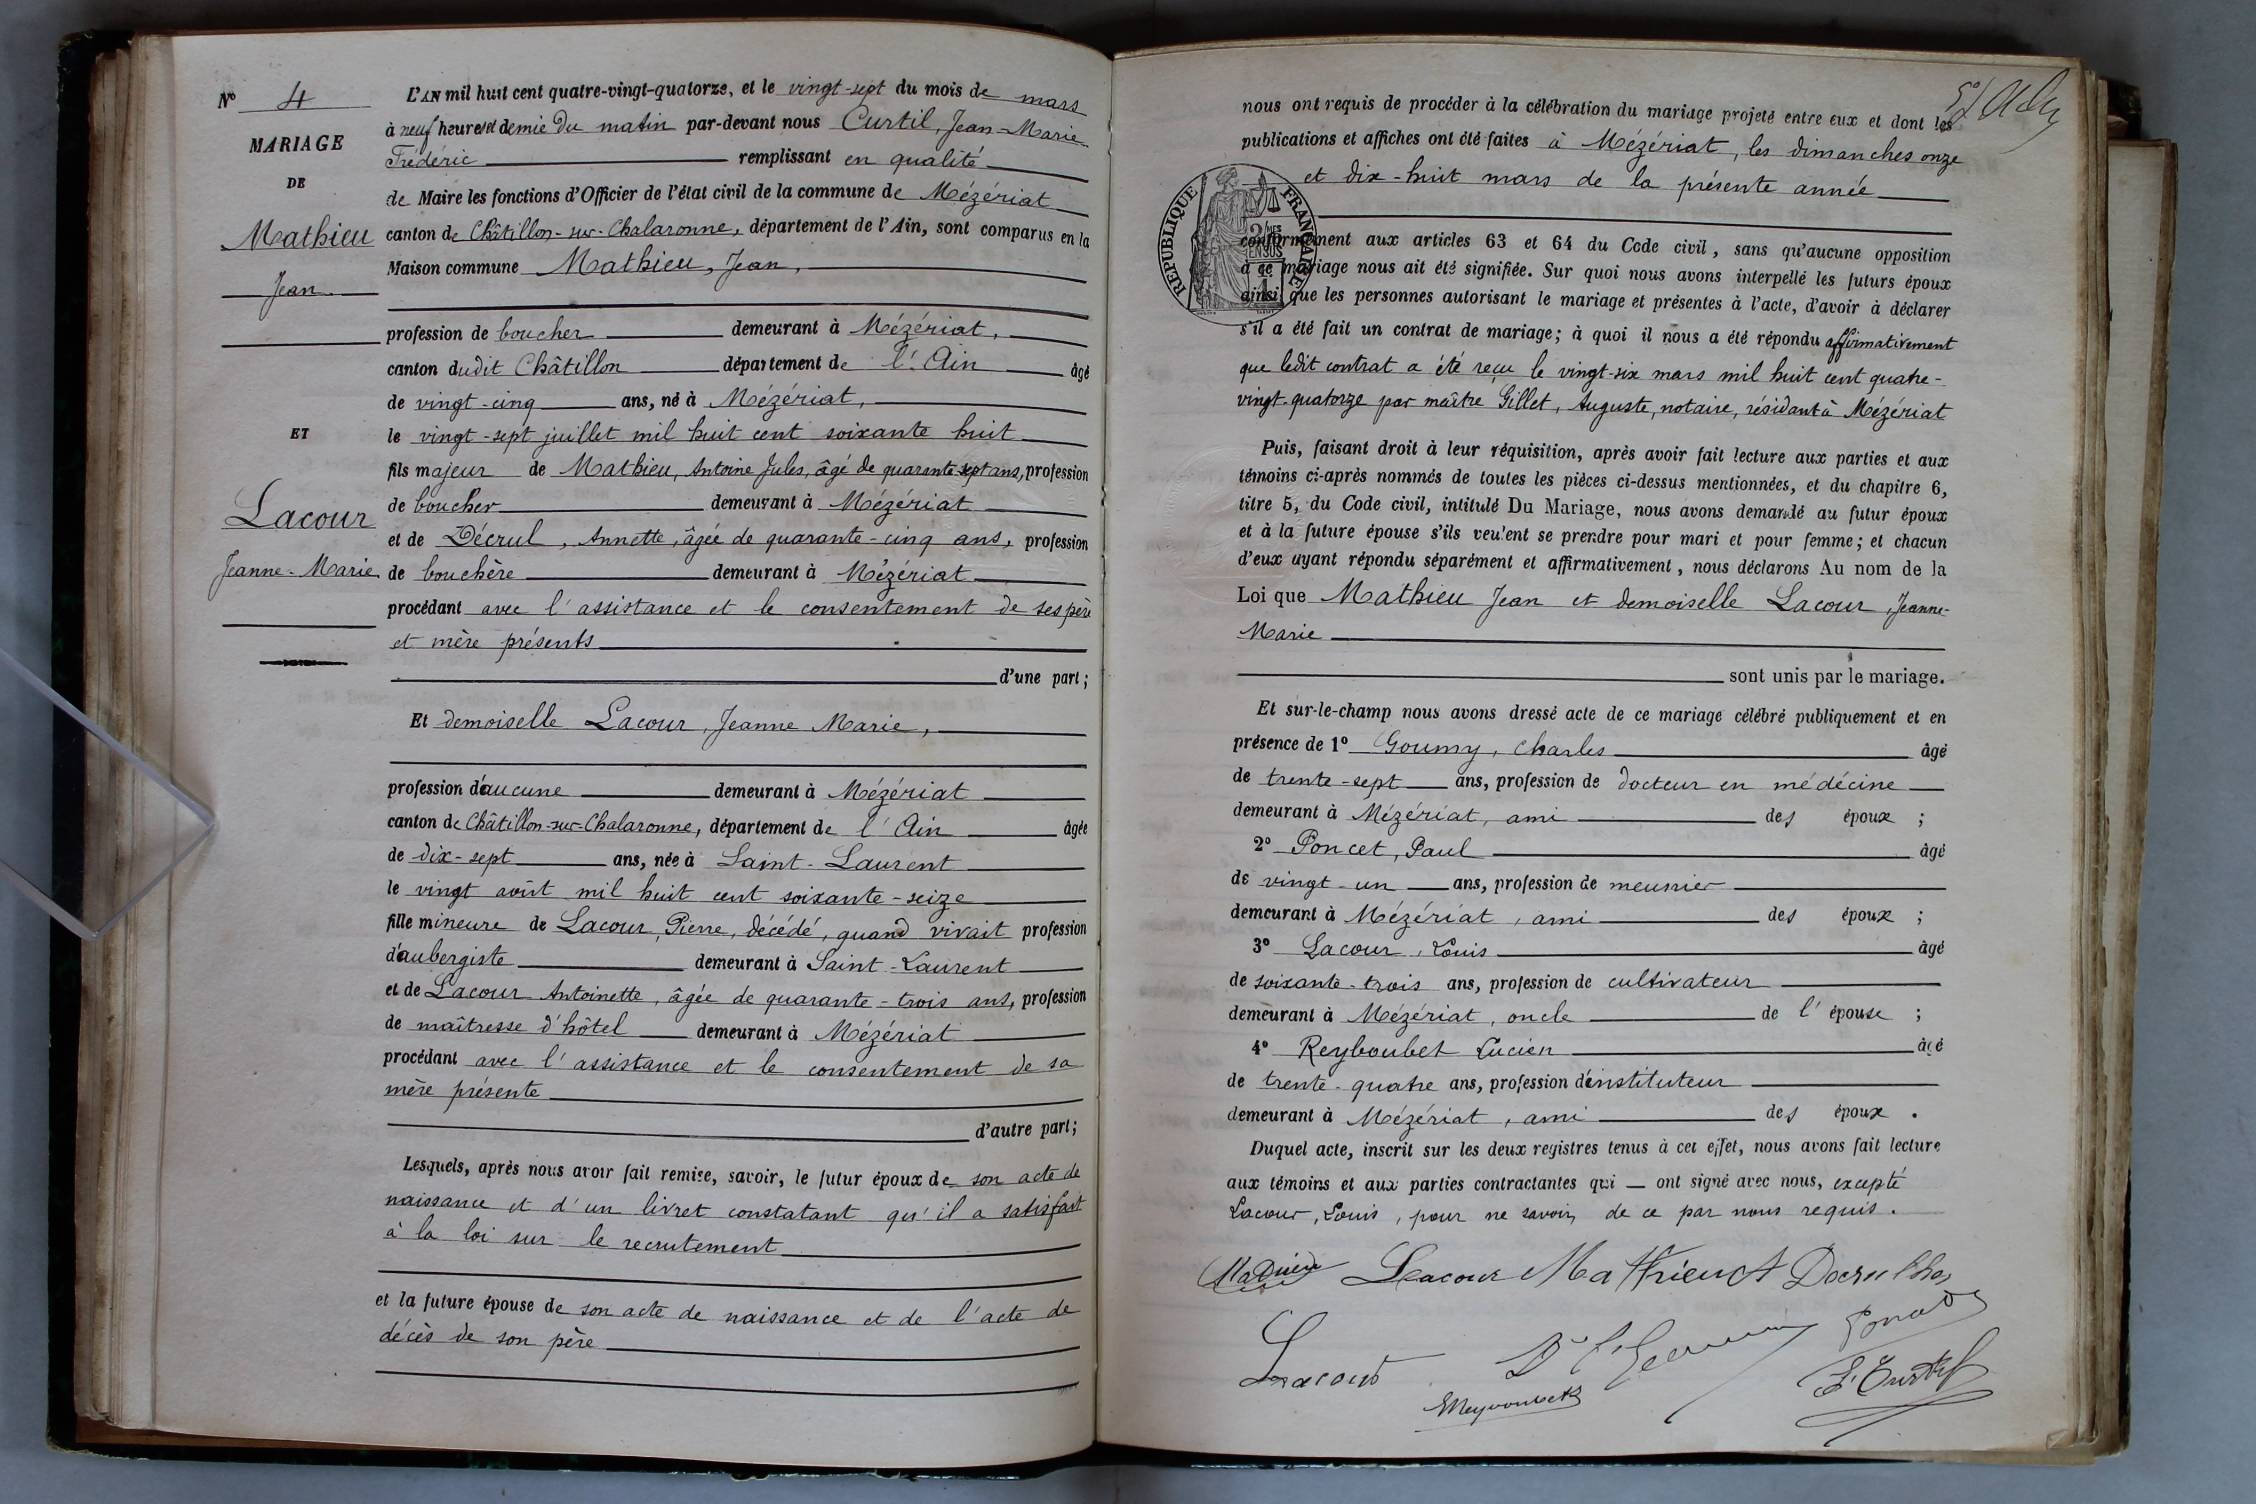 N° 4
MARIAGE
DE
Mathieu
Jean
ET
Lacour
Jeanne-Marie
L'AN mil huit cent quatre-vingt-quatorze, et le vingt-sept du mois de mars
à neuf heures et demie du matin par-devant nous Curtil, Jean-Marie
Frédéric remplissant en qualité
de Maire les fonctions d'Officier de l'état civil de la commune de Mézériat
canton de Châtillon-sur-Chalaronne, département de l'Ain, sont comparus en la
Maison commune Mathieu, Jean,
profession de boucher demeurant à Mézériat,
canton dudit Châtillon département de l'Ain âgé
de vingt-cinq ans, né à Mézériat,
le vingt-sept juillet mil huit cent soixante huit
fils majeur de Mathieu, Antoine Jules, âgé de quarante-sept ans, profession
de boucher demeurant à Mézériat
et de Décrul, Annette, âgée de quarante-cinq ans, profession
de bouchère demeurant à Mézériat
procédant avec l'assistance et le consentement de ses père
et mère présents
d'une part;
Et demoiselle Lacour, Jeanne Marie,
profession d'aucune demeurant à Mézériat
canton de Châtillon-sur-Chalaronne, département de l'Ain âgée
de dix-sept ans, née à Saint-Laurent
le vingt août mil huit cent soixante-seize
fille mineure de Lacour, Pierre, décédé, quand vivait profession
d'aubergiste demeurant à Saint-Laurent
et de Lacour Antoinette, âgée de quarante-trois ans, profession
de maîtresse d'hôtel demeurant à Mézériat
procédant avec l'assistance et le consentement de sa
mère présente
d'autre part;
Lesquels, après nous avoir fait remise, savoir, le futur époux de son acte de
naissance et d'un livret constatant qu'il a satisfait
à la loi sur le recrutement
et la future épouse de son acte de naissance et de l'acte de
décès de son père
nous ont requis de procéder à la célébration du mariage projeté entre eux et dont les
publications et affiches ont été faites à Mézériat, les dimanches onze
et dix-huit mars de la présente année
RÉPUBLIQUE FRANÇAISE
conformément aux articles 63 et 64 du Code civil, sans qu'aucune opposition
à ce mariage nous ait été signifiée. Sur quoi nous avons interpellé les futurs époux
ainsi que les personnes autorisant le mariage et présentes à l'acte, d'avoir à déclarer
s'il a été fait un contrat de mariage; à quoi il nous a été répondu affirmativement
que ledit contrat a été reçu le vingt-six mars mil huit cent quatre-
vingt-quatorze par maître Gillet, Auguste, notaire, résidant à Mézériat
Puis, faisant droit à leur réquisition, après avoir fait lecture aux parties et aux
témoins ci-après nommés de toutes les pièces ci-dessus mentionnées, et du chapitre 6,
titre 5, du Code civil, intitulé Du Mariage, nous avons demandé au futur époux
et à la future épouse s'ils veulent se prendre pour mari et pour femme; et chacun
d'eux ayant répondu séparément et affirmativement, nous déclarons Au nom de la
Loi que Mathieu Jean et demoiselle Lacour, Jeanne-
Marie
sont unis par le mariage.
Et sur-le-champ nous avons dressé acte de ce mariage célébré publiquement et en
présence de 1° Goumy, Charles âgé
de trente-sept ans, profession de docteur en médécine
demeurant à Mézériat, ami des époux ;
2° Poncet, Paul âgé
de vingt-un ans, profession de meunier
demeurant à Mézériat, ami des époux ;
3° Lacour, Louis âgé
de soixante-trois ans, profession de cultivateur
demeurant à Mézériat, oncle de l'épouse ;
4° Reyboubet Lucien âgé
de trente-quatre ans, profession d'instituteur
demeurant à Mézériat, ami des époux .
Duquel acte, inscrit sur les deux registres tenus à cet effet, nous avons fait lecture
aux témoins et aux parties contractantes qui — ont signé avec nous, excepté
Lacour, Louis, pour ne savoir, de ce par nous requis.
Mathieu Lacour Mathieu A
Lacour